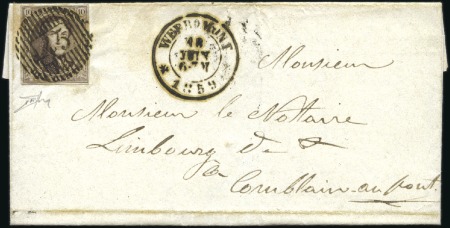 10 10
WERBOMONT
1859
Monsieur
Monsieur le Notaire
Limbourg de &
à Comblain-au-pont.